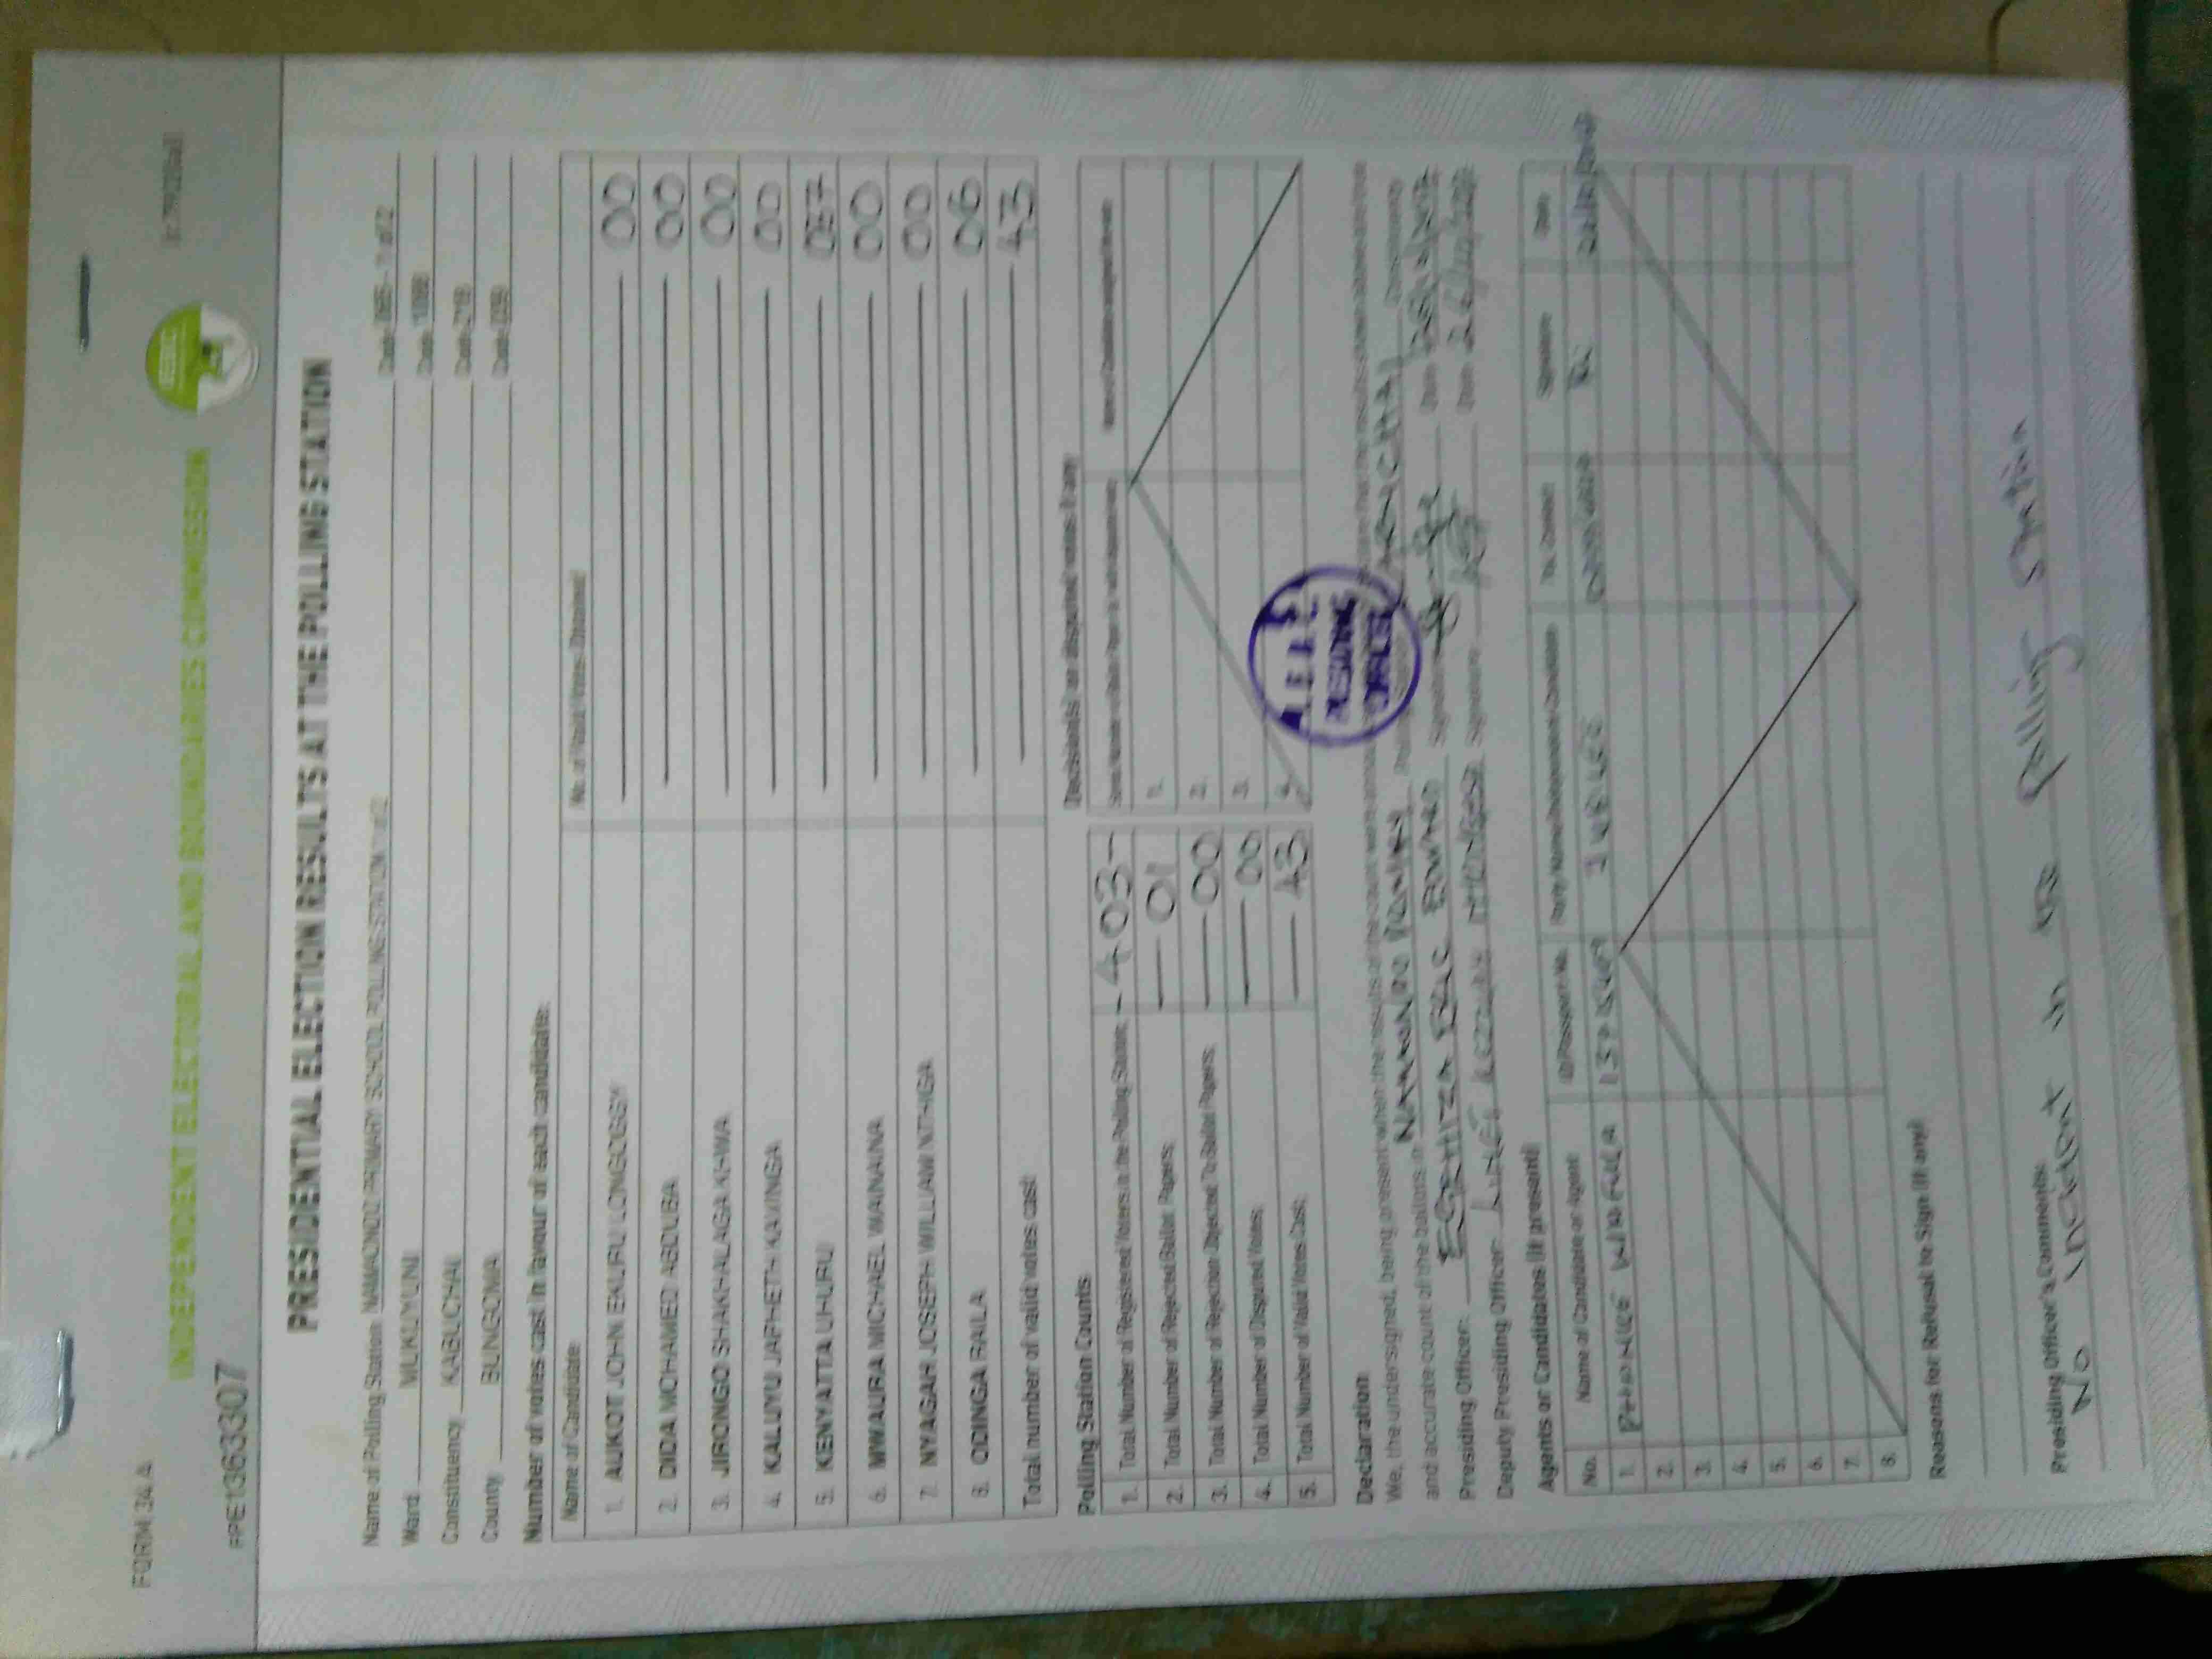 FORM 34A
FPE1363307
INDEPENDENT ELECTORAL AND BOUNDARIES COMMISSION
PRESIDENTIAL ELECTION RESULTS AT THE POLLING STATION
Name of Polling Station NAMAONDO PRIMARY SCHOOL POLLING STATION 1 of 2 Code 065 - 1 of 2
Ward MUKUYUNI Code 1088
Constituency KABUCHAI Code 218
County BUNGOMA Code 039
Number of votes cast in favour of each candidate:
Name of Candidate No. of Valid Votes Obtained
1. AUKOT JOHN EKURU LONGOGGY 00
2. DIDA MOHAMED ABDUBA 00
3. JIRONGO SHAKHALAGA KHWA 00
4. KALUYU JAPHETH KAVINGA 00
5. KENYATTA UHURU 037
6. MWAURA MICHAEL WAINAINA 00
7. NYAGAH JOSEPH WILLIAM NTHIGA 00
8. ODINGA RAILA 06
Total number of valid votes cast 43
Polling Station Counts
1. Total Number of Registered Voters in the Polling Station: 403
2. Total Number of Rejected Ballot Papers: 01
3. Total Number of Rejection Objected To Ballot Papers: 00
4. Total Number of Disputed Votes: 00
5. Total Number of Valid Votes Cast: 43
Decision(s) on disputed votes if any
1.
2.
3.
4.
IEBC
PRESIDING
OFFICER
Declaration
We, the undersigned, being present when the results of the count were announced
and accurate count of the ballots in
Presiding Officer: Signature Date
Deputy Presiding Officer: Signature Date 26/10/
Agents or Candidates (if present)
No. Name of Candidate or Agent ID/Passport No. Party Name/Independent Candidate Tel. Contact Signature Date
1. WAFULA JUBILEE
2.
3.
4.
5.
6.
7.
8.
Reasons for Refusal to Sign (if any)
Presiding Officer's Comments:
No incident in the Polling station